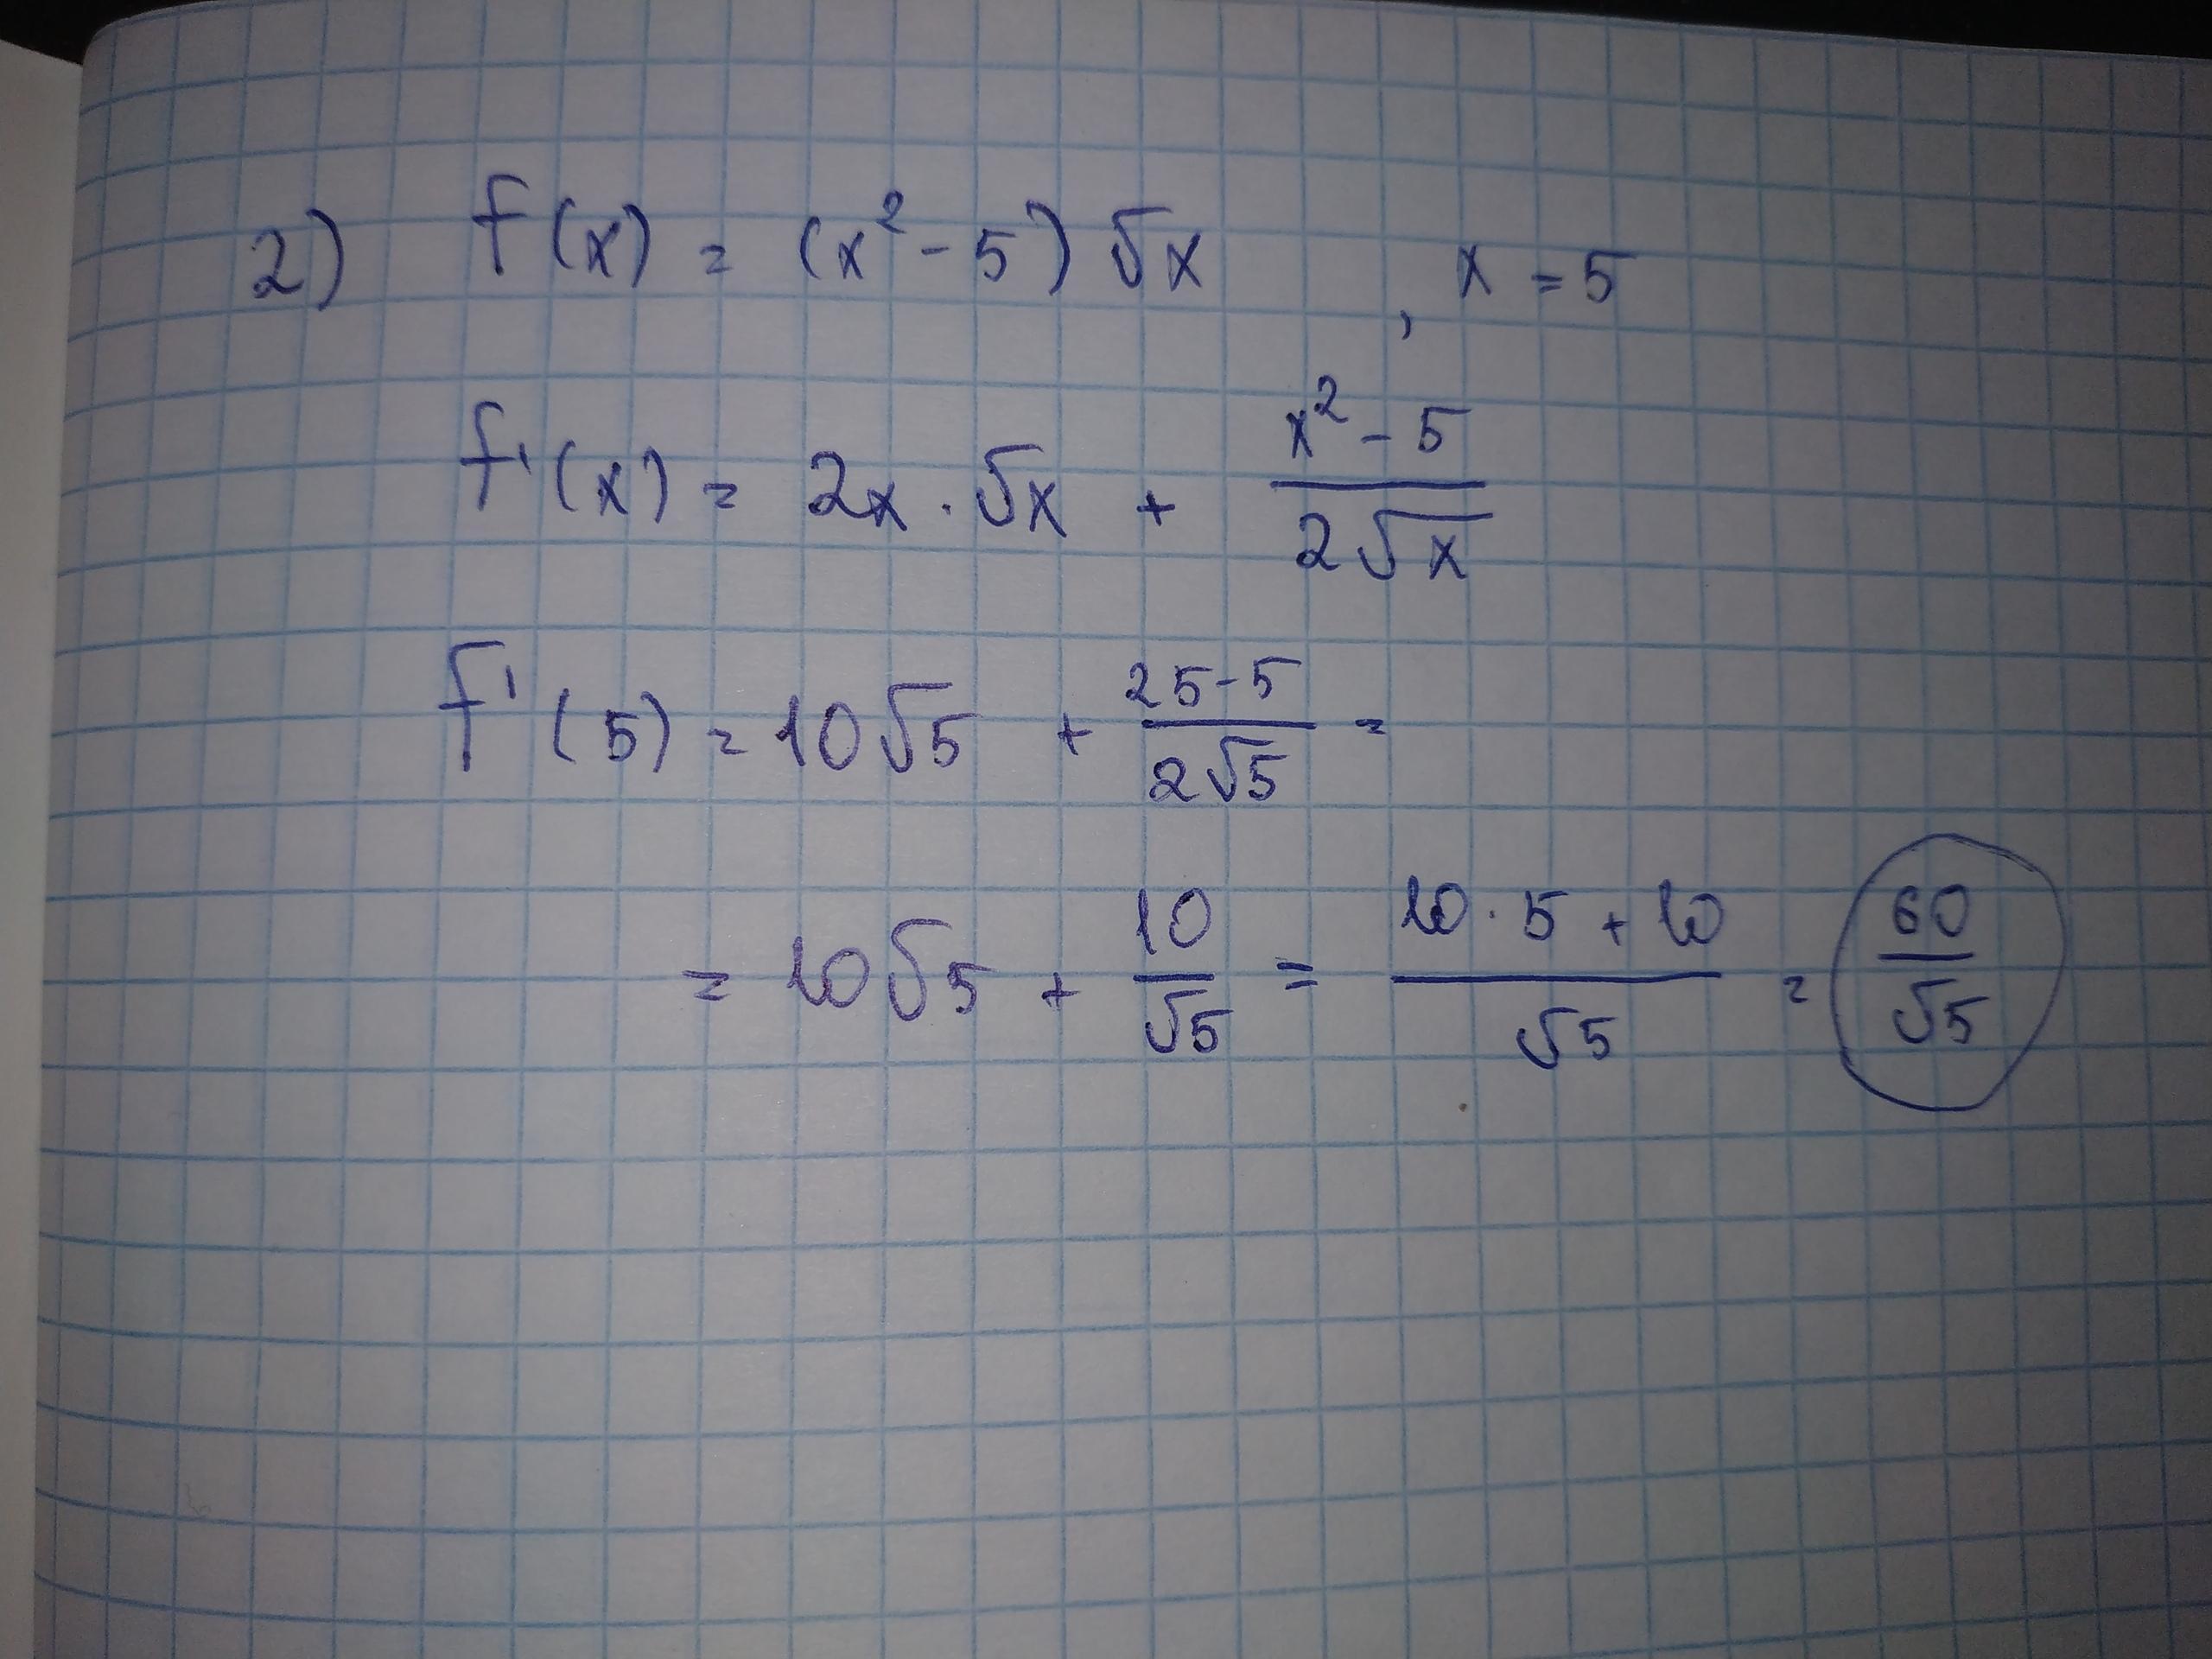 2) f(x) = (x² - 5) √x , x = 5
f'(x) = 2x · √x + (x² - 5)/(2√x)
f'(5) = 10√5 + (25-5)/(2√5) =
= 10√5 + 10/√5 = (10 · 5 + 10)/√5 = 60/√5